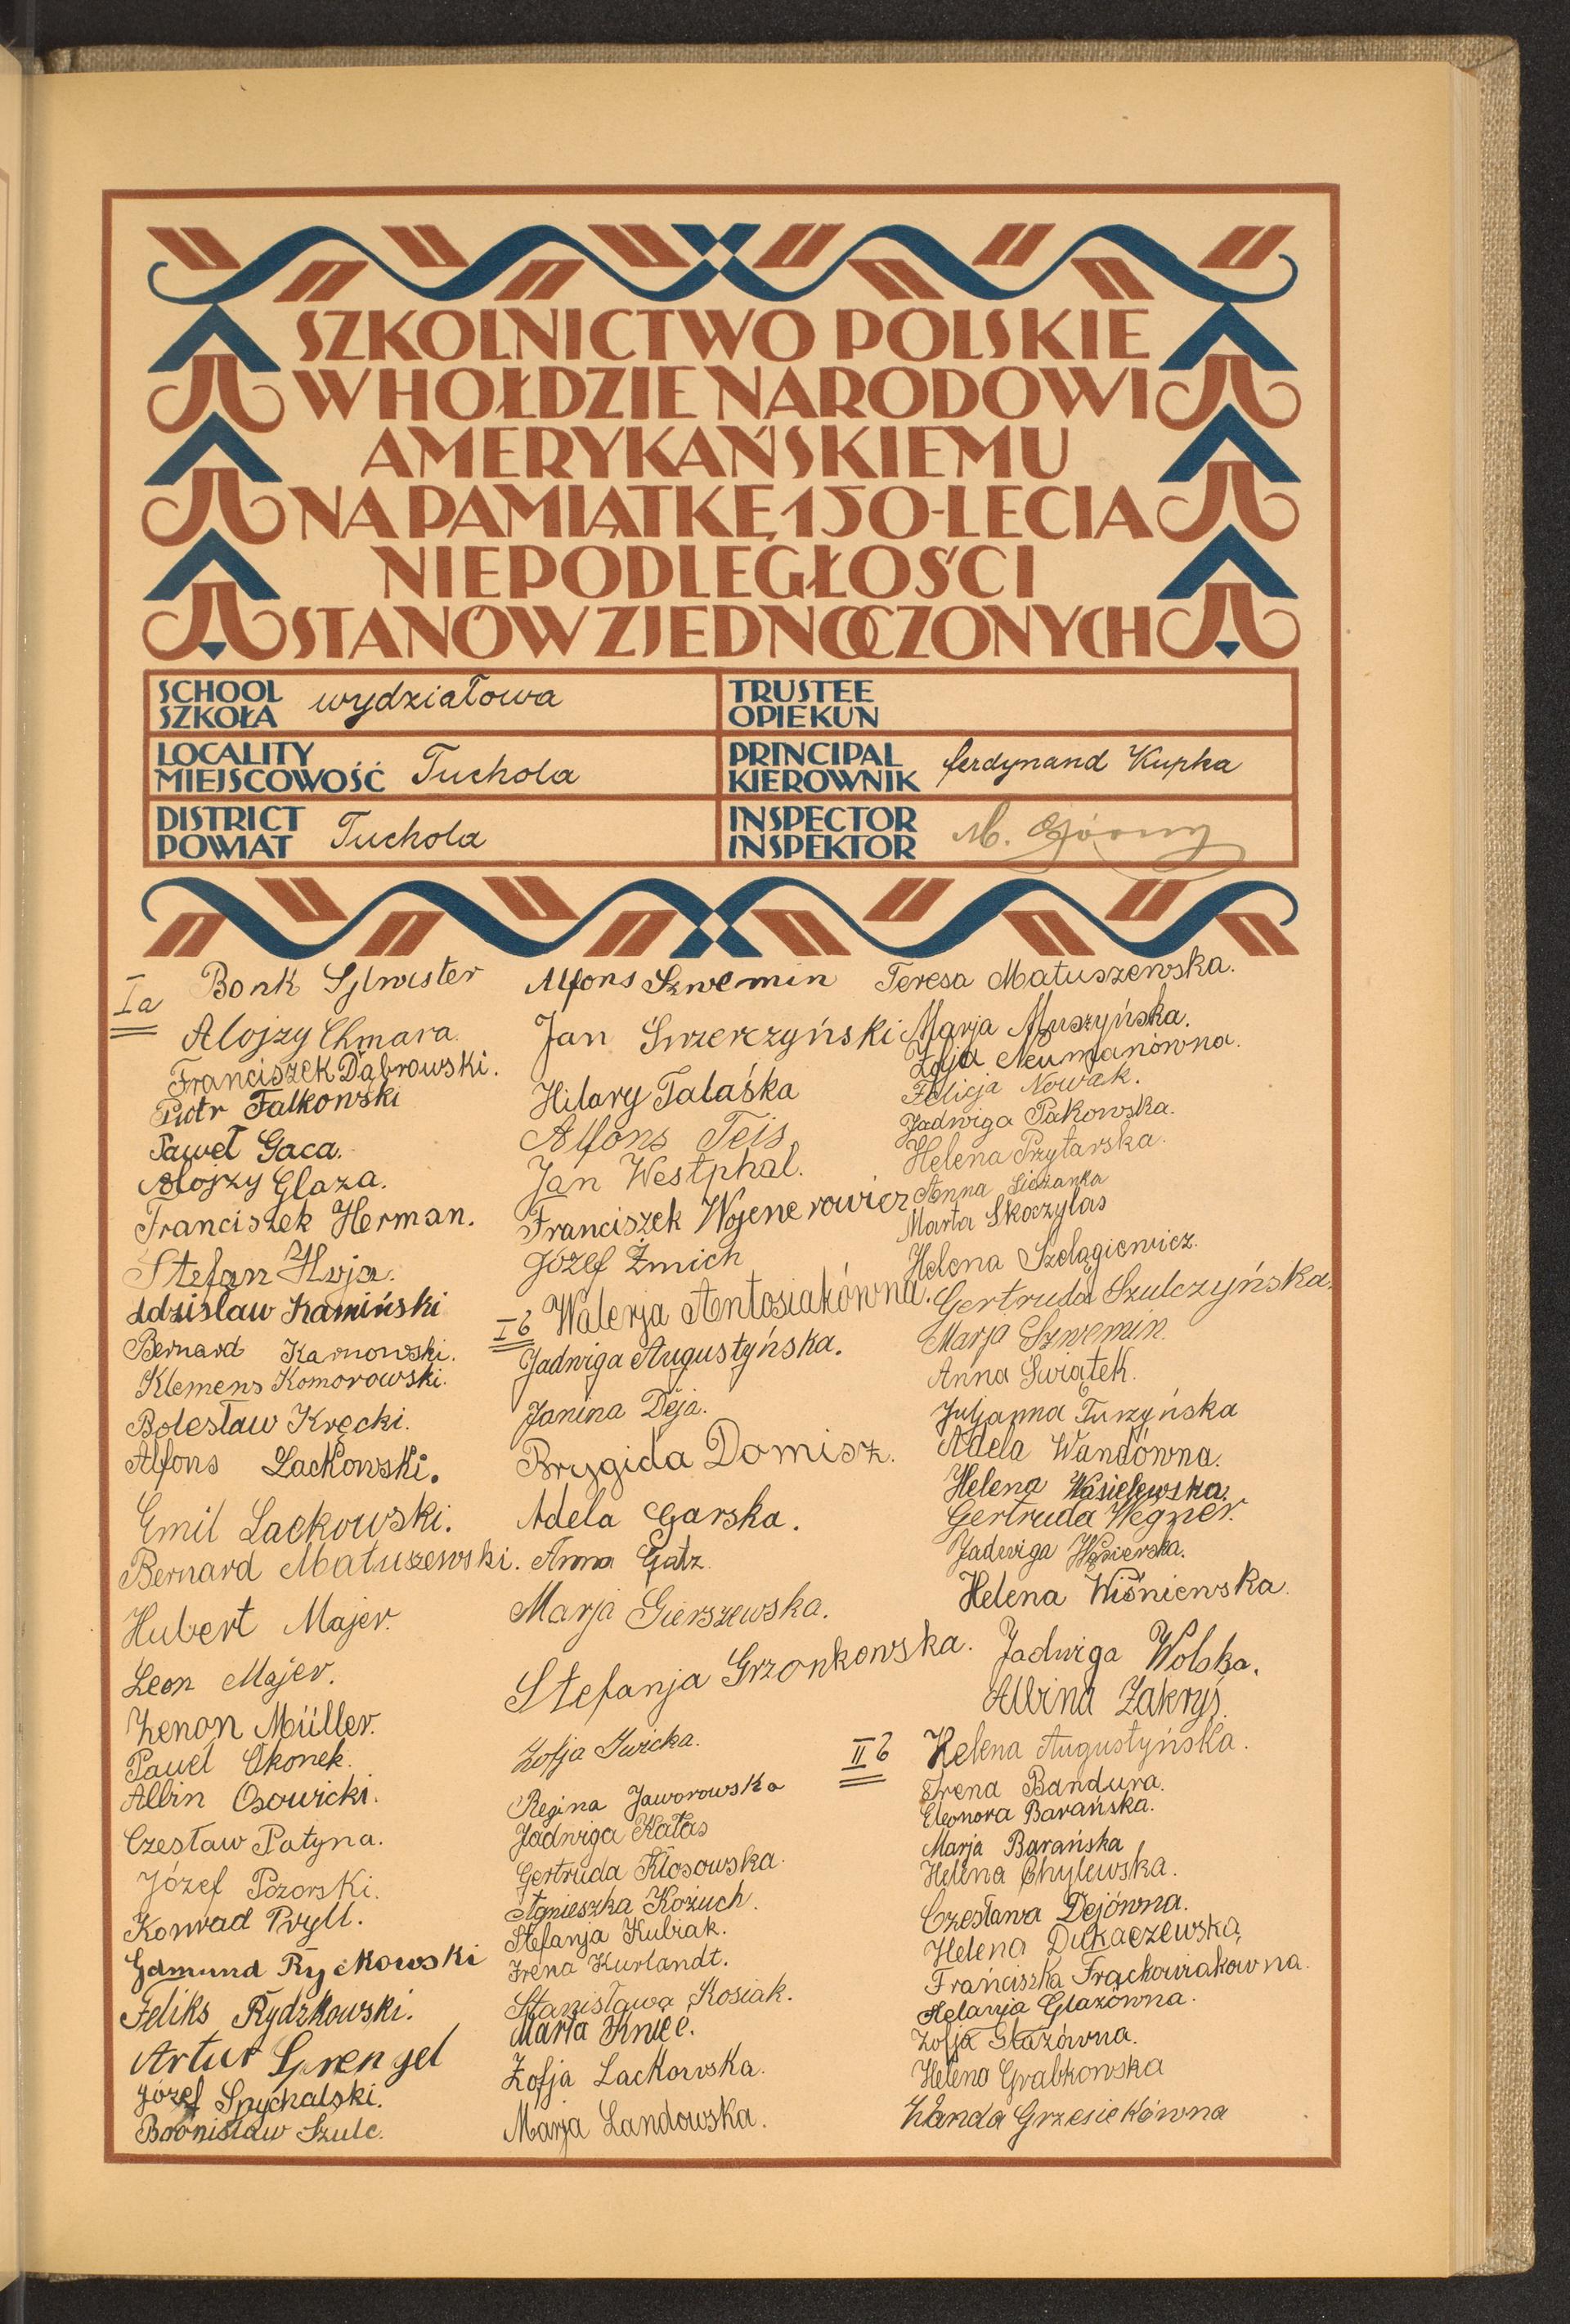 SZKOLNICTWO POLSKIE
W HOŁDZIE NARODOWI
AMERYKAŃSKIEMU
NA PAMIĄTKĘ 150-LECIA
NIEPODLEGŁOŚCI
STANÓW ZJEDNOCZONYCH
SCHOOL
SZKOŁA wydziałowa
TRUSTEE
OPIEKUN
LOCALITY
MIEJSCOWOŚĆ Tuchola
PRINCIPAL
KIEROWNIK ferdynand Kupka
DISTRICT
POWIAT Tuchola
INSPECTOR
INSPEKTOR M. Górny
Ia
Bonk Sylwester
Alojzy Chmara
Franciszek Dąbrowski.
Piotr Falkowski
Paweł Gaca.
Alojzy Glaza.
Franciszek Herman.
Stefan Hoja.
Zdzisław Kamiński
Bernard Karnowski.
Klemens Komorowski.
Bolesław Kręcki.
Alfons Lackowski.
Emil Lackowski.
Bernard Matuszewski.
Hubert Majer.
Leon Majer.
Zenon Müller.
Paweł Okonek.
Albin Osowicki.
Czesław Patyna.
Józef Pozorski.
Konrad Pryll.
Edmund Ryckowski
Feliks Rydzkowski.
Artur Sprengel
Józef Spychalski.
Bronisław Szulc.
Alfons Szwemin
Jan Świerczyński
Hilary Talaśka
Alfons Teis
Jan Westphal.
Franciszek Wojnerowicz
Józef Żmich
Ib
Walerja Antosiakówna.
Jadwiga Augustyńska.
Janina Deja.
Brygida Domisz.
Adela Garska.
Anna Gatz.
Marja Gierszewska.
Stefanja Grzonkowska.
Zofja Iwicka.
Regina Jaworowska
Jadwiga Kałas
Gertruda Kłosowska.
Agnieszka Kożuch.
Stefanja Kubiak.
Irena Kurlandt.
Stanisława Kosiak.
Marta Knieć.
Zofja Lackowska.
Marja Landowska.
Teresa Matuszewska.
Marja Muszyńska.
Zofja Neumanówna.
Felicja Nowak.
Jadwiga Pakowska.
Helena Przytarska.
Anna
Marta Skoczylas
Helena Szelągiewicz.
Gertruda Szulczyńska.
Marja Szwemin.
Anna Świątek.
Juljanna Turzyńska
Adela Wandówna.
Helena Wasielewska.
Gertruda Wegner.
Jadwiga
Helena Wiśniewska.
Jadwiga Wolska.
Albina Zakryś.
IIb
Helena Augustyńska.
Irena Bandura.
Eleonora Barańska.
Marja Barańska
Helena Chylewska.
Czesława Dejówna.
Helena Dukaczewska,
Franciszka Frąckowiakowna.
Helanja Glazówna.
Zofja Glazówna.
Helena Grabkowska
Wanda Grzesiekówna